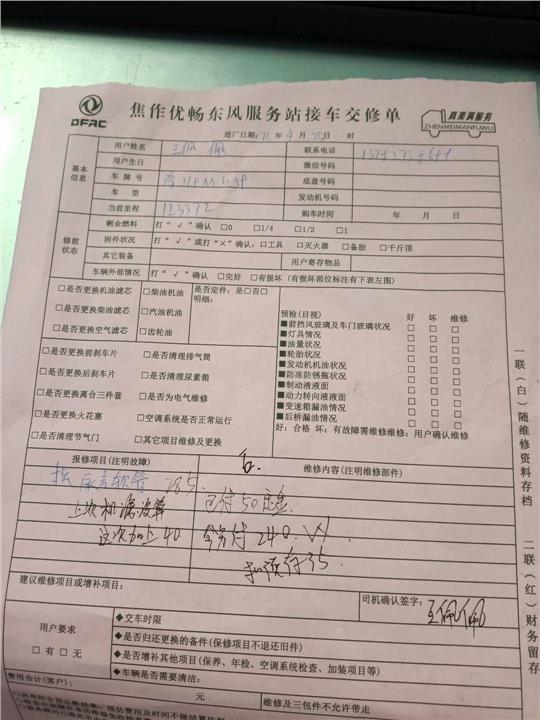 DFAC 焦作优畅东风服务站接车交修单
真美满服务
ZHENMEIMANFUWU
进厂日期: 年 4 月 25 日 时
基本信息
用户姓名 王佩佩 联系电话
用户生日 微信号码
车牌号 底盘号码
车型 发动机号码
当前里程 123372 购车时间 年 月 日
修前状态
剩余燃料 打“√”确认 □0 □1/4 □1/2 □1
附件状况 打“√”或打“×”确认:□工具 □灭火器 □备胎 □千斤顶
其它装备 用户寄存物品
车辆外部情况 打“√”确认 □完好 □有损坏(有损坏部位标注有下表左图)
□是否更换机油滤芯 □柴油机油
□是否更换柴油滤芯 □汽油机油
□是否更换空气滤芯 □齿轮油
是否定件:是□否□
明细:
□是否更换前刹车片 □是否清理排气筒
□是否更换后刹车片 □是否清理尿素箱
□是否更换离合三件套 □是否为电气维修
□是否更换火花塞 □空调系统是否正常运行
□是否清理节气门 □其它项目维修及更换
预检(目视) 好 坏 维修
■前挡风玻璃及车门玻璃状况 □ □ □
■灯具情况 □ □ □
■油量状况 □ □ □
■轮胎状况 □ □ □
■发动机机油状况 □ □ □
■防冻防锈瓶状况 □ □ □
■制动液液面 □ □ □
■动力转向液液面 □ □ □
■变速箱漏油情况 □ □ □
■后桥漏油情况 □ □ □
好:合格 坏:有故障需维修维修:用户确认维修
报修项目(注明故障) 维修内容(注明维修部件)
尿素软管 285 已付50定金
上次机滤没算 今务付240.
这次加上40 扣预存35.
建议维修项目或增补项目:
司机确认签字: 王佩佩
用户要求
□有 □无
◆交车时限
◆是否归还更换的备件(保修项目不退还旧件)
◆是否增补其他项目(保养、年检、空调系统检查、加装项目等)
◆车辆是否需要清洁:
费用合计(客户): 元 维修及三包件不允许带走
一联(白)随维修资料存档
二联(红)财务留存